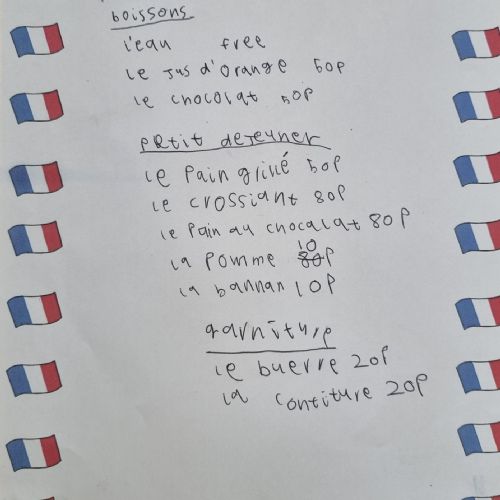 boissons
l'eau free
le jus d'orange 50p
le chocolat 50p
petit dejeuner
le pain grillé 50p
le crossiant 80p
le pain au chocalat 80p
la pomme 10p
la bannan 10p
garniture
le buerre 20p
la contiture 20p